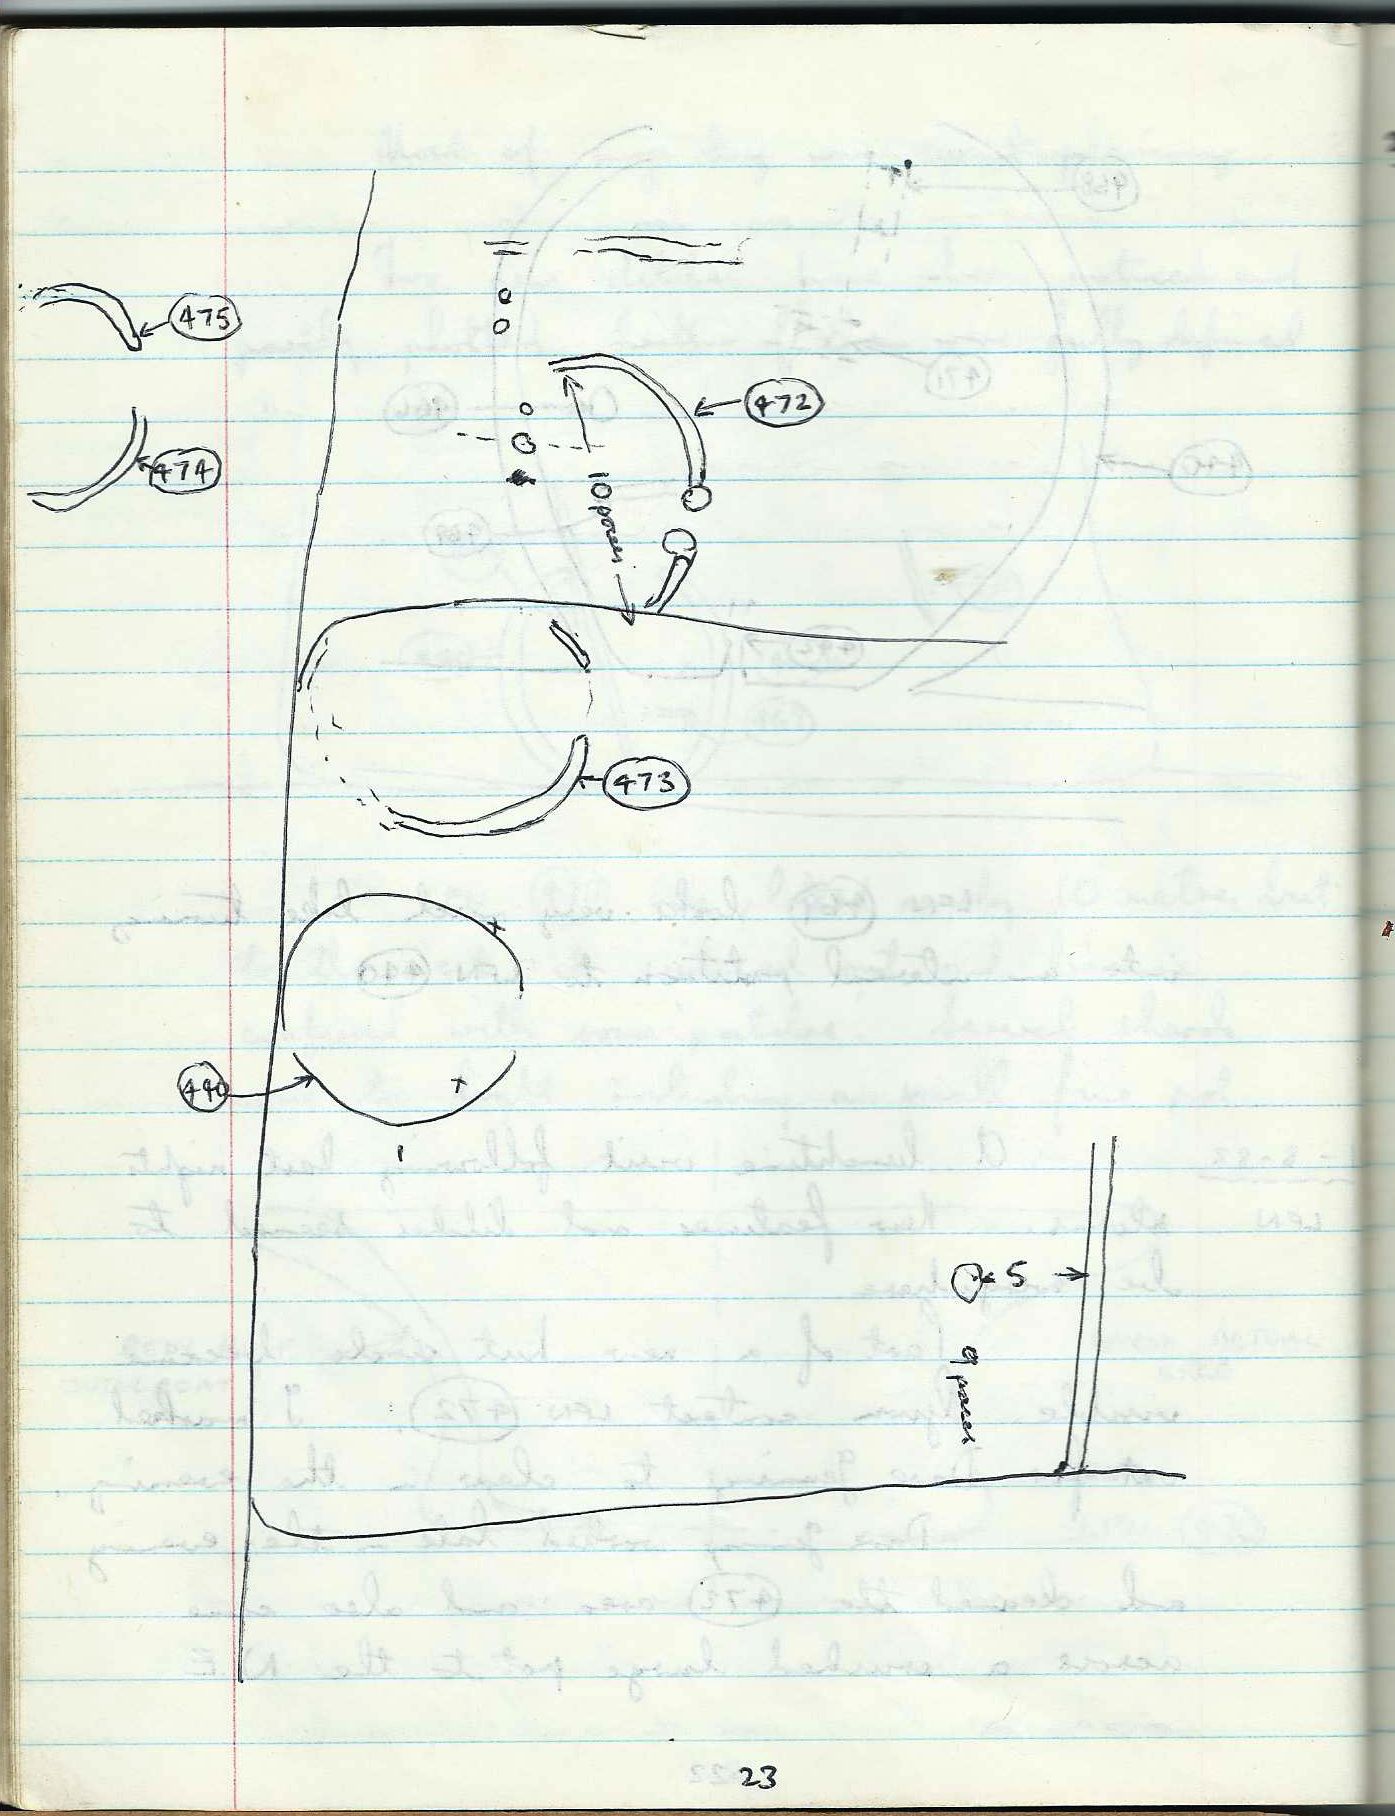 475
472
474
10 paces
473
490
5
9 paces
23